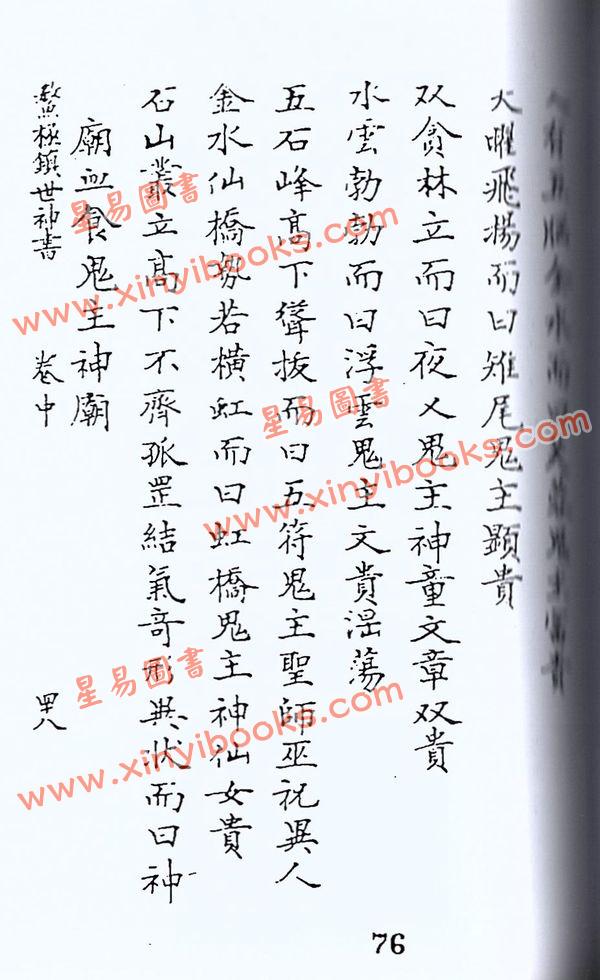 火曜飛揚而曰雉尾鬼主顯貴
双貪林立而曰夜乂鬼主神童文章双貴
水雲勃勃而曰浮雲鬼主文貴淫蕩
五石峰高下聳拔而曰五符鬼主聖師巫祝異人
金水仙橋勢若橫虹而曰虹橋鬼主神仙女貴
石山叢立高下不齊孤罡結氣奇形異状而曰神
廟血食鬼主神廟
鰲極鎮世神書 卷中 四八
76
星易圖書
www.xinyibooks.com
星易圖書
www.xinyibooks.com
星易圖書
www.xinyibooks.com